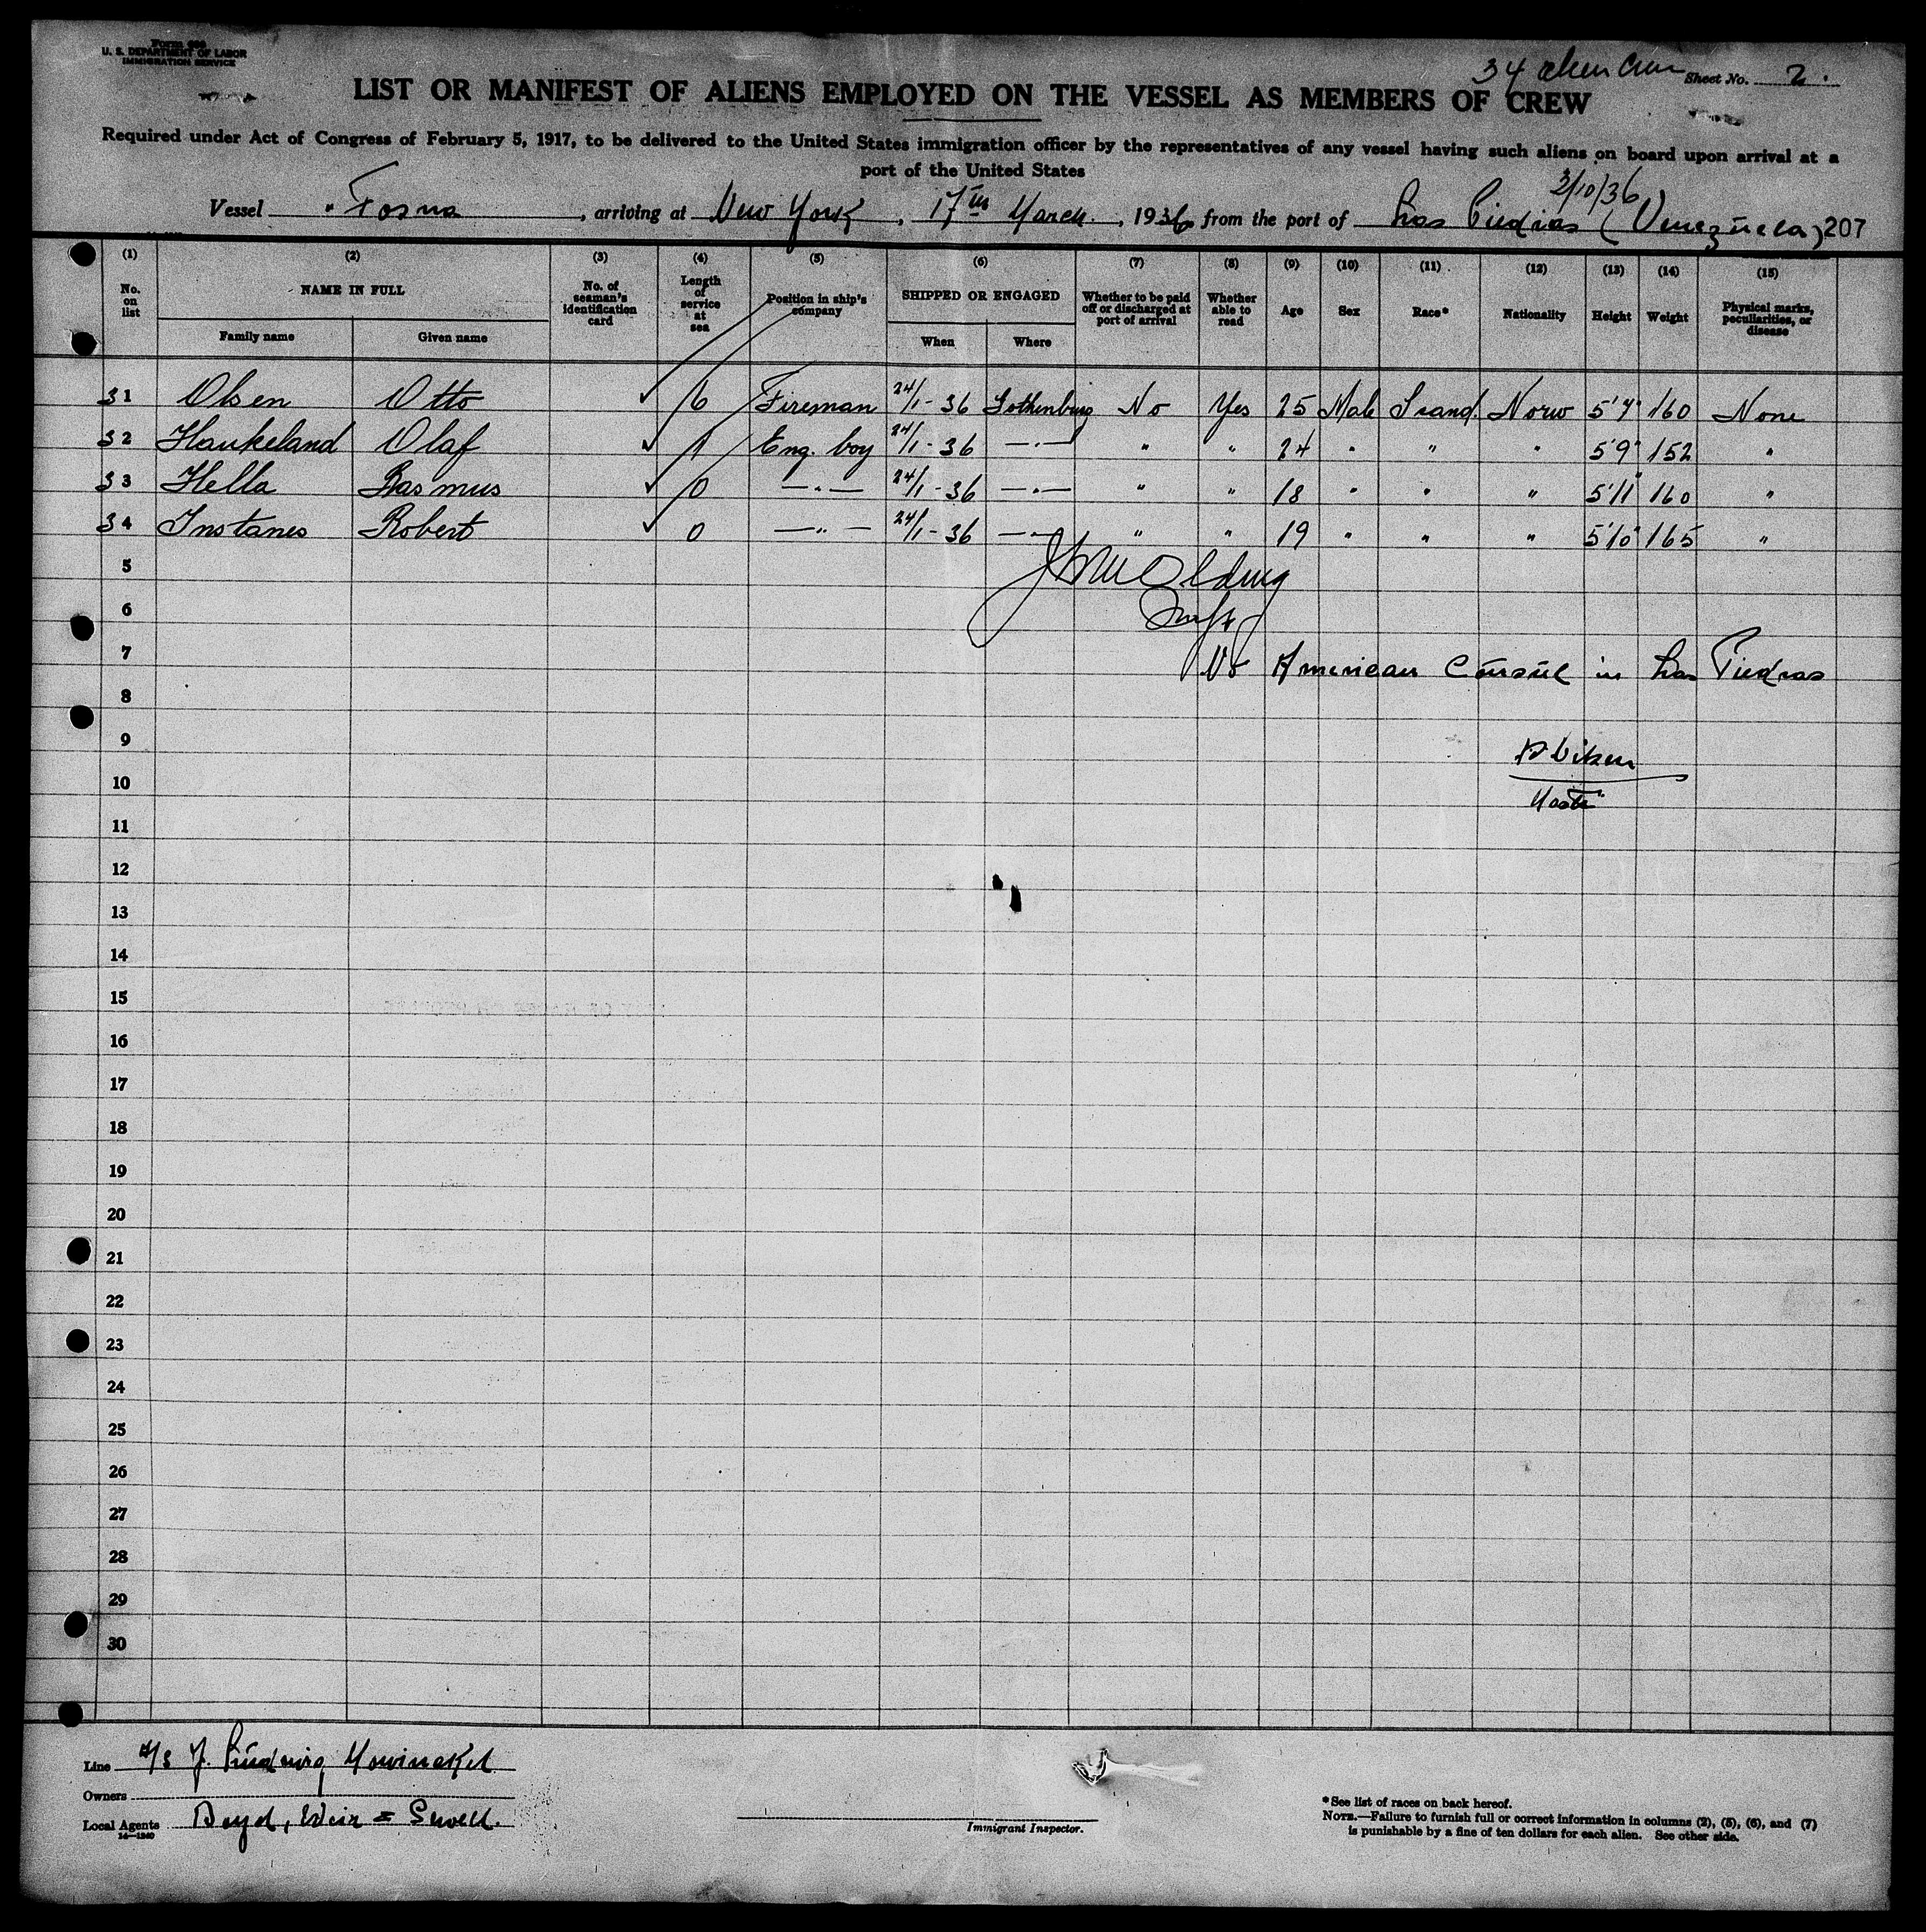 Form 680
U. S. DEPARTMENT OF LABOR
IMMIGRATION SERVICE
34 alien crew
Sheet No. 2.
LIST OR MANIFEST OF ALIENS EMPLOYED ON THE VESSEL AS MEMBERS OF CREW
Required under Act of Congress of February 5, 1917, to be delivered to the United States immigration officer by the representatives of any vessel having such aliens on board upon arrival at a
port of the United States
3/10/36
Vessel "Fosna, arriving at New York, 17th March, 1936 from the port of Las Piedras (Venezuela) 207
(1) (2) (3) (4) (5) (6) (7) (8) (9) (10) (11) (12) (13) (14) (15)
No. on list NAME IN FULL No. of seaman's identification card Length of service at sea Position in ship's company SHIPPED OR ENGAGED Whether to be paid off or discharged at port of arrival Whether able to read Age Sex Race* Nationality Height Weight Physical marks, peculiarities, or disease
Family name Given name When Where
31 Olsen Otto 6 Fireman 24/1-36 Gothenburg No Yes 25 Male Scand. Norw 5'7" 160 None
32 Haukeland Olaf 1 Eng. boy 24/1-36 —"— " " 24 " " " 5'9" 152 "
33 Hella Rasmus 0 —"— 24/1-36 —"— " " 18 " " " 5'11 160 "
34 Instanes Robert 0 —"— 24/1-36 —"— " " 19 " " " 5'10" 165 "
5
6
7 No American Consul in Las Piedras
8
9
10 Master
11
12
13
14
15
16
17
18
19
20
21
22
23
24
25
26
27
28
29
30
Line A/S J. Ludwig Mowinckel
Owners
Local Agents Boyd, Weir & Sewell.
14—1240
Immigrant Inspector.
*See list of races on back hereof.
NOTE.—Failure to furnish full or correct information in columns (2), (5), (6), and (7)
is punishable by a fine of ten dollars for each alien. See other side.